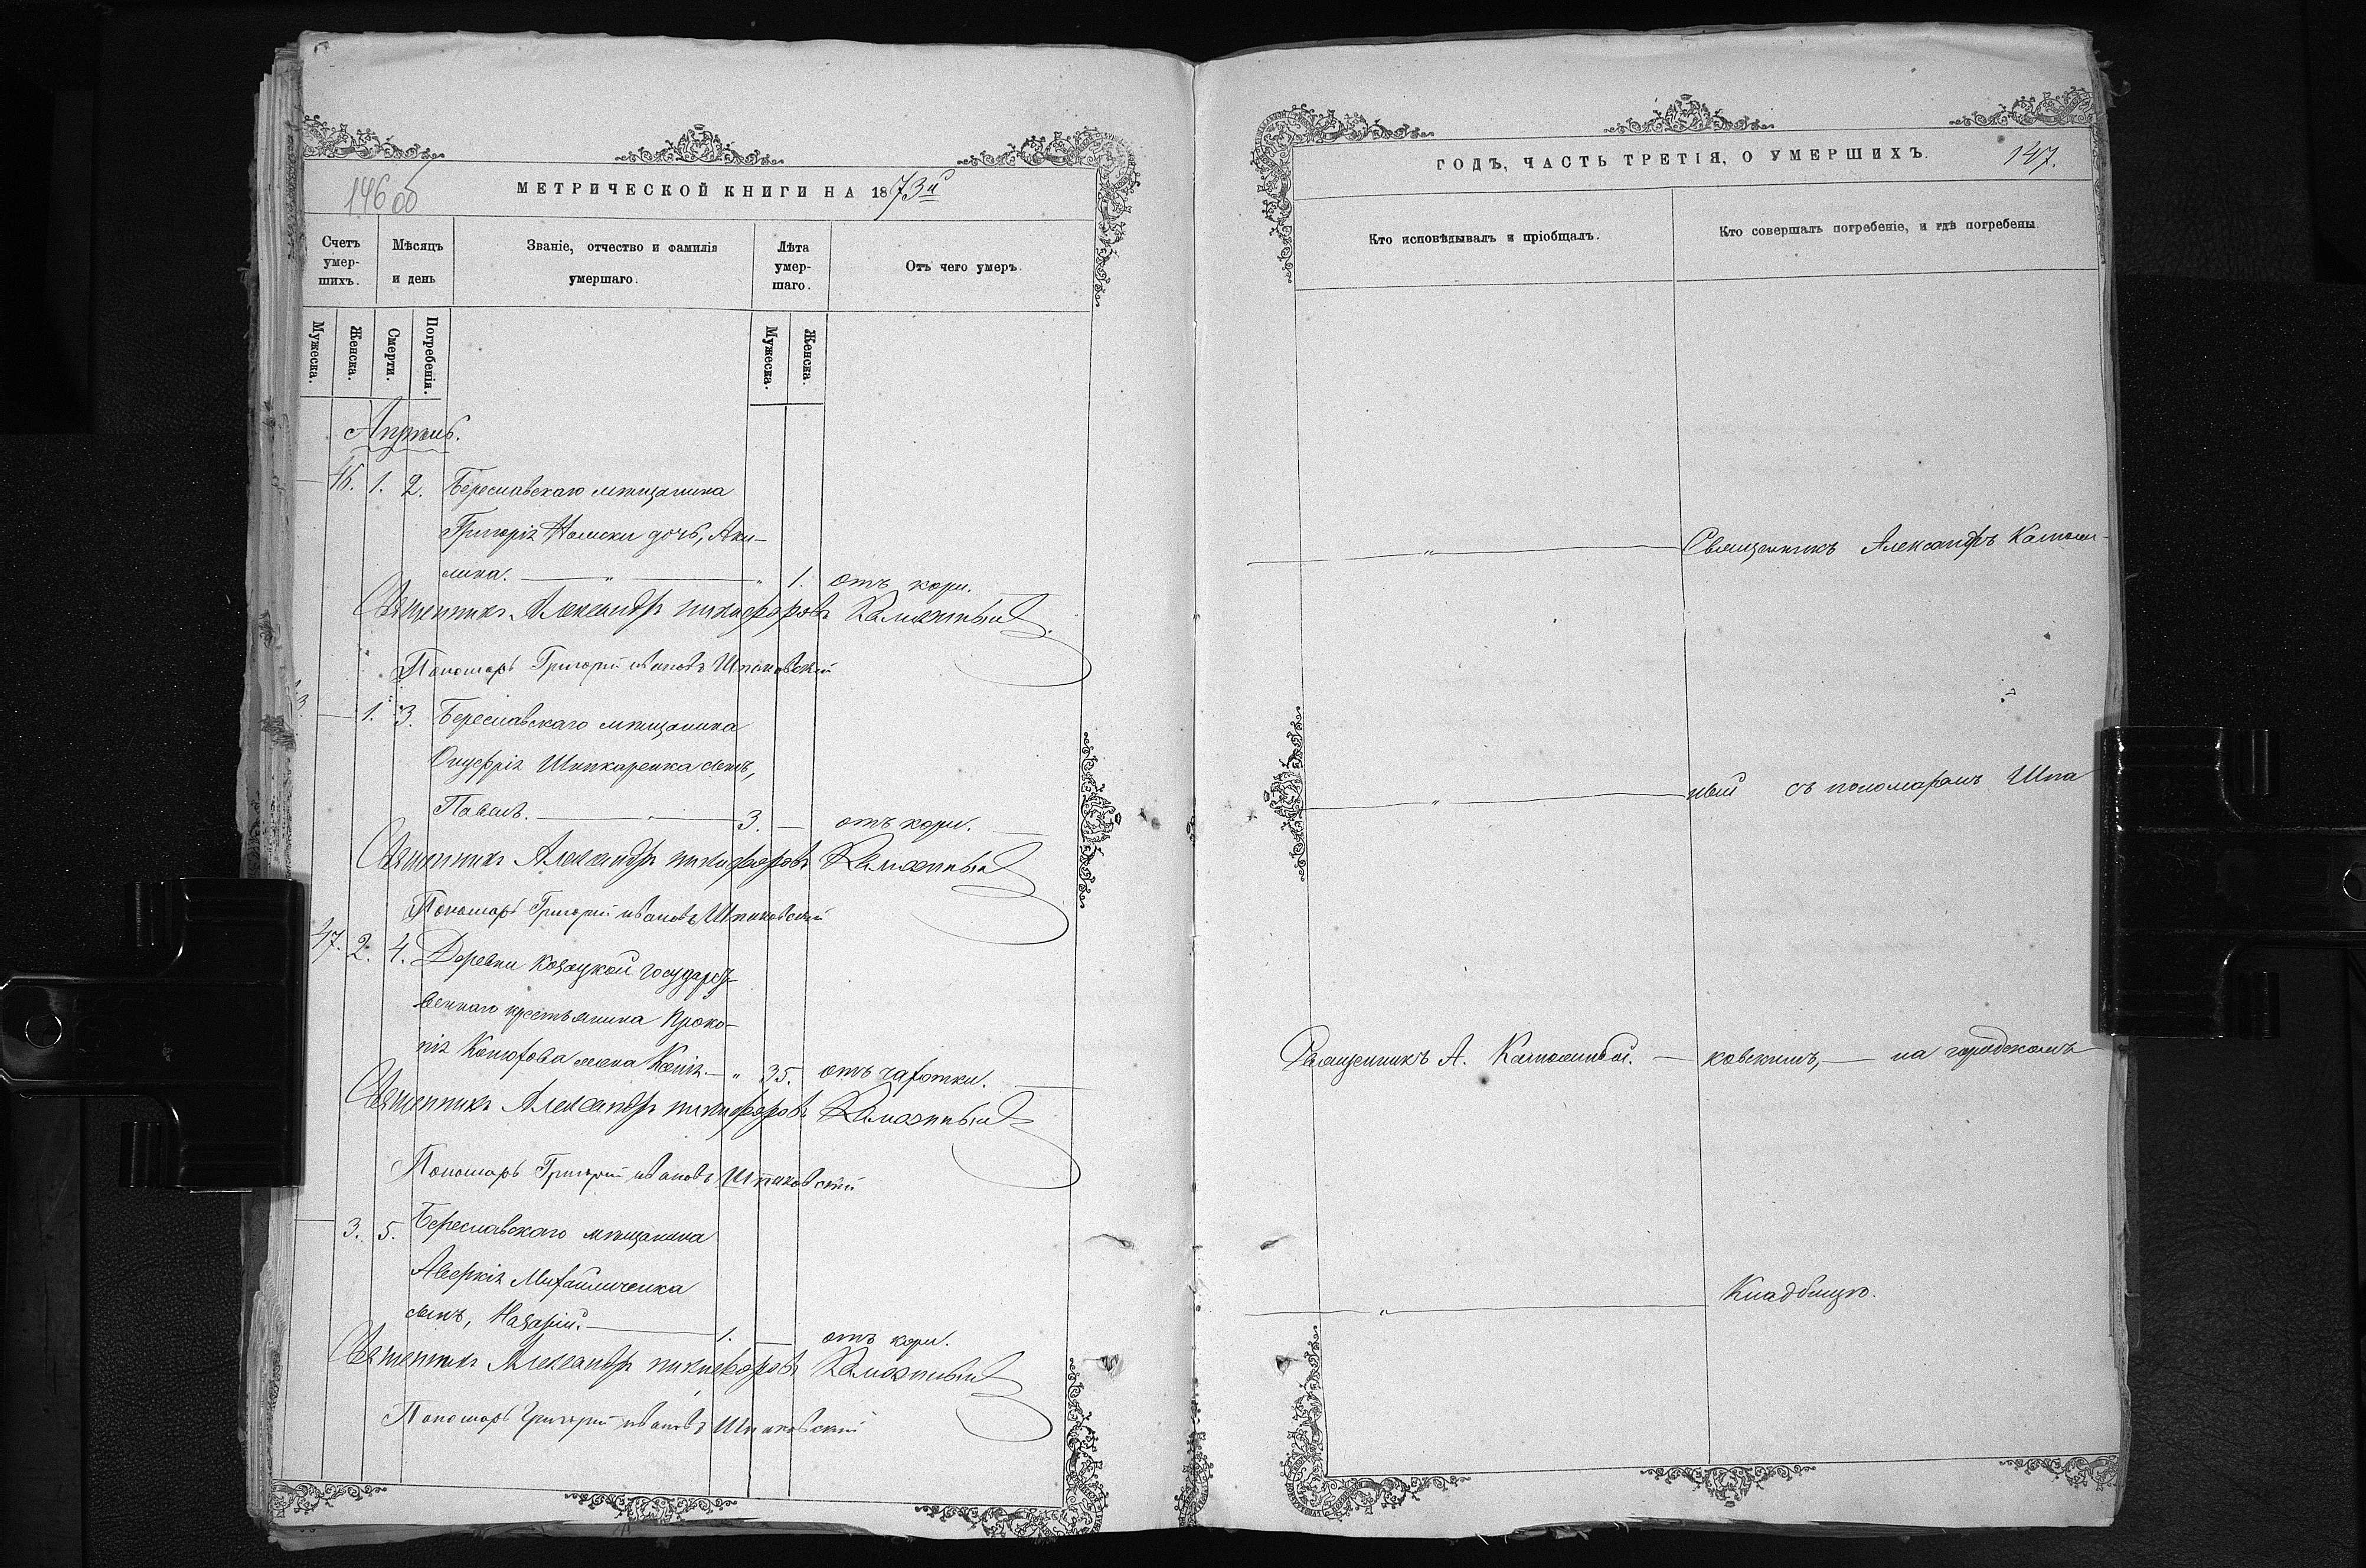 146 об
МЕТРИЧЕСКОЙ КНИГИ НА 1873й
Счетъ умер-шихъ.
Мѣсяцъ и день
Званіе, отчество и фамилія умершаго.
Лѣта умер-шаго.
Отъ чего умеръ.
Мужеска.
Женска.
Смерти.
Погребенія.
Мужеска.
Женска.
Апрѣль.
46. 1. 2. Береславскаго мѣщанина
Григорія дочь, Аки-
лина. — " — " 1. отъ кори.
Священникъ Александръ Никифоровъ
Пономарь Григорій Ивановъ Шпаковскій
3. — 1. 3. Береславскаго мѣщанина
Онуфрія Шинкаренка сынъ,
Павелъ. — 3. — отъ кори.
Священникъ Александръ Никифоровъ
Пономарь Григорій Ивановъ Шпаковскій
47. 2. 4. Деревни Козацкой государст-
веннаго крестьянина Проко-
пія жена — " 35. отъ чахотки.
Священникъ Александръ Никифоровъ
Пономарь Григорій Ивановъ Шпаковскій
— 3. 5. Береславскаго мѣщанина
Аверкія Михайличенка
сынъ, Назарій. — 1. — отъ кори.
Священникъ Александръ Никифоровъ
Пономарь Григорій Ивановъ Шпаковскій
ГОДЪ, ЧАСТЬ ТРЕТІЯ, О УМЕРШИХЪ. 147.
Кто исповѣдывалъ и пріобщалъ.
Кто совершалъ погребеніе, и гдѣ погребены.
— " — Священникъ Александръ
— " — ный съ пономаремъ Шпа
Священникъ А. — ковскимъ, — на городскомъ
— " — Кладбищѣ.